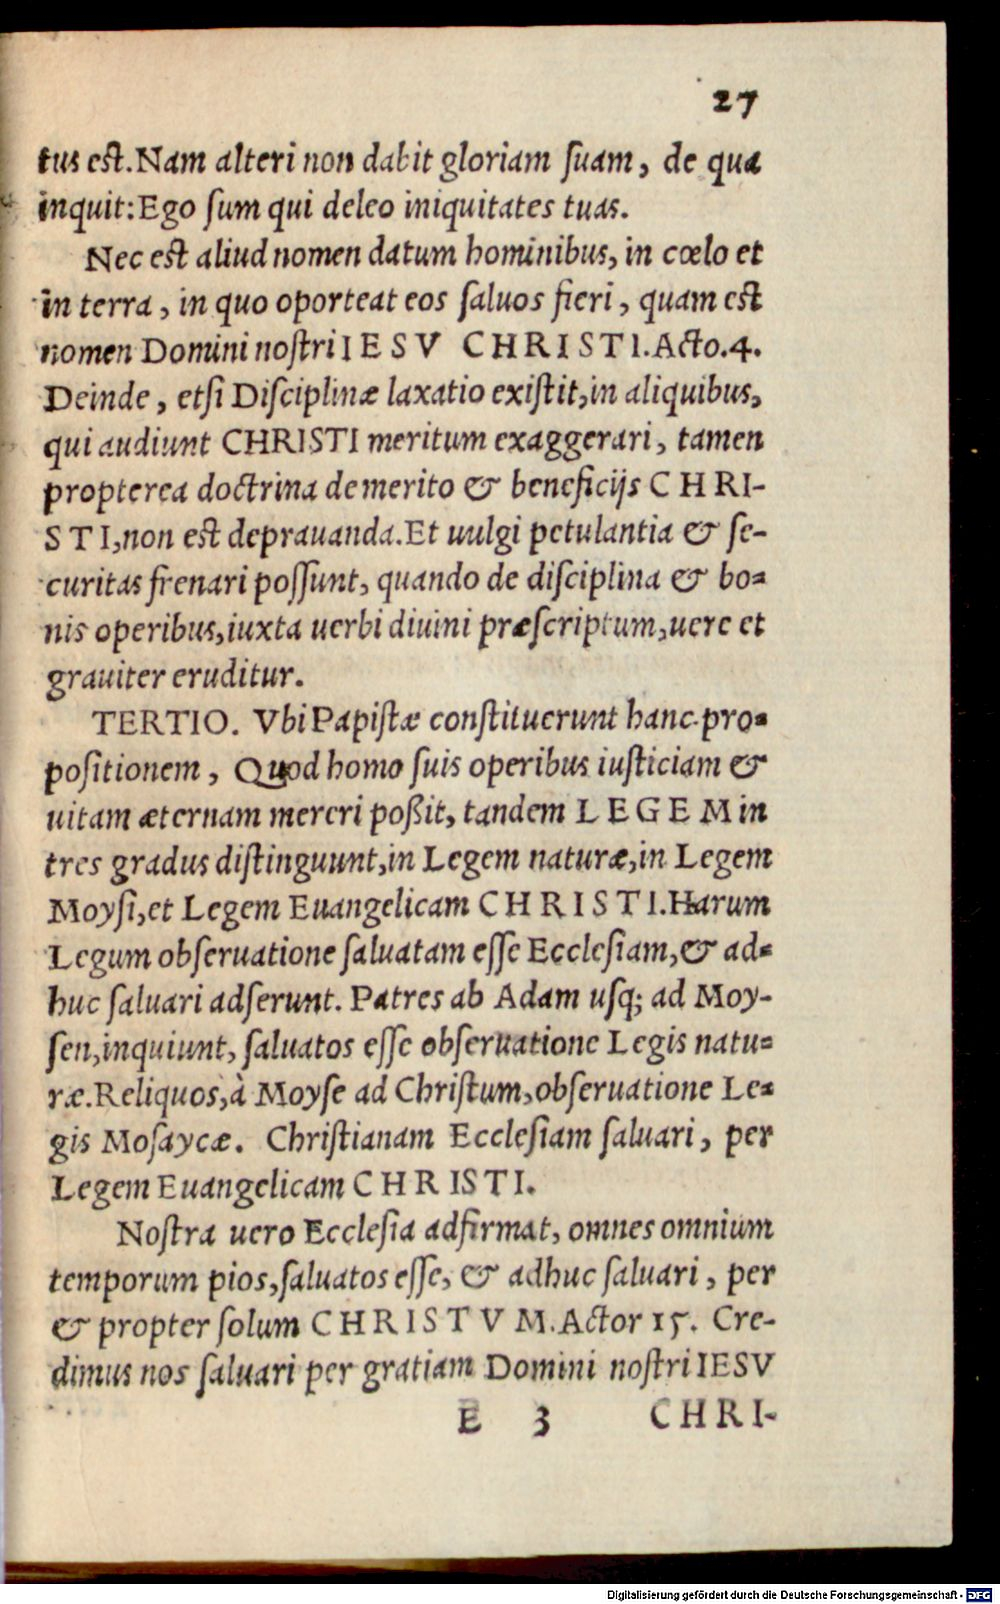 27
tus est. Nam alteri non dabit gloriam suam, de qua
inquit: Ego sum qui deleo iniquitates tuas.
Nec est aliud nomen datum hominibus, in cœlo et
in terra, in quo oporteat eos saluos fieri, quam est
nomen Domini nostri IESV CHRISTI. Acto. 4.
Deinde, etsi Disciplinæ laxatio existit, in aliquibus,
qui audiunt CHRISTI meritum exaggerari, tamen
propterea doctrina de merito & beneficijs CHRI-
STI, non est deprauanda. Et uulgi petulantia & se-
curitas frenari possunt, quando de disciplina & bo-
nis operibus, iuxta uerbi diuini præscriptum, uere et
grauiter eruditur.
TERTIO. Vbi Papistæ constituerunt hanc pro-
positionem, Quod homo suis operibus iusticiam &
uitam æternam mereri poßit, tandem LEGEM in
tres gradus distinguunt, in Legem naturæ, in Legem
Moysi, et Legem Euangelicam CHRISTI. Harum
Legum obseruatione saluatam esse Ecclesiam, & ad-
huc saluari adserunt. Patres ab Adam usq; ad Moy-
sen, inquiunt, saluatos esse obseruatione Legis natu-
ræ. Reliquos, à Moyse ad Christum, obseruatione Le-
gis Mosaycæ. Christianam Ecclesiam saluari, per
Legem Euangelicam CHRISTI.
Nostra uero Ecclesia adfirmat, omnes omnium
temporum pios, saluatos esse, & adhuc saluari, per
& propter solum CHRISTVM. Actor 15. Cre-
dimus nos saluari per gratiam Domini nostri IESV
E 3 CHRI-
Digitalisierung gefördert durch die Deutsche Forschungsgemeinschaft - DFG